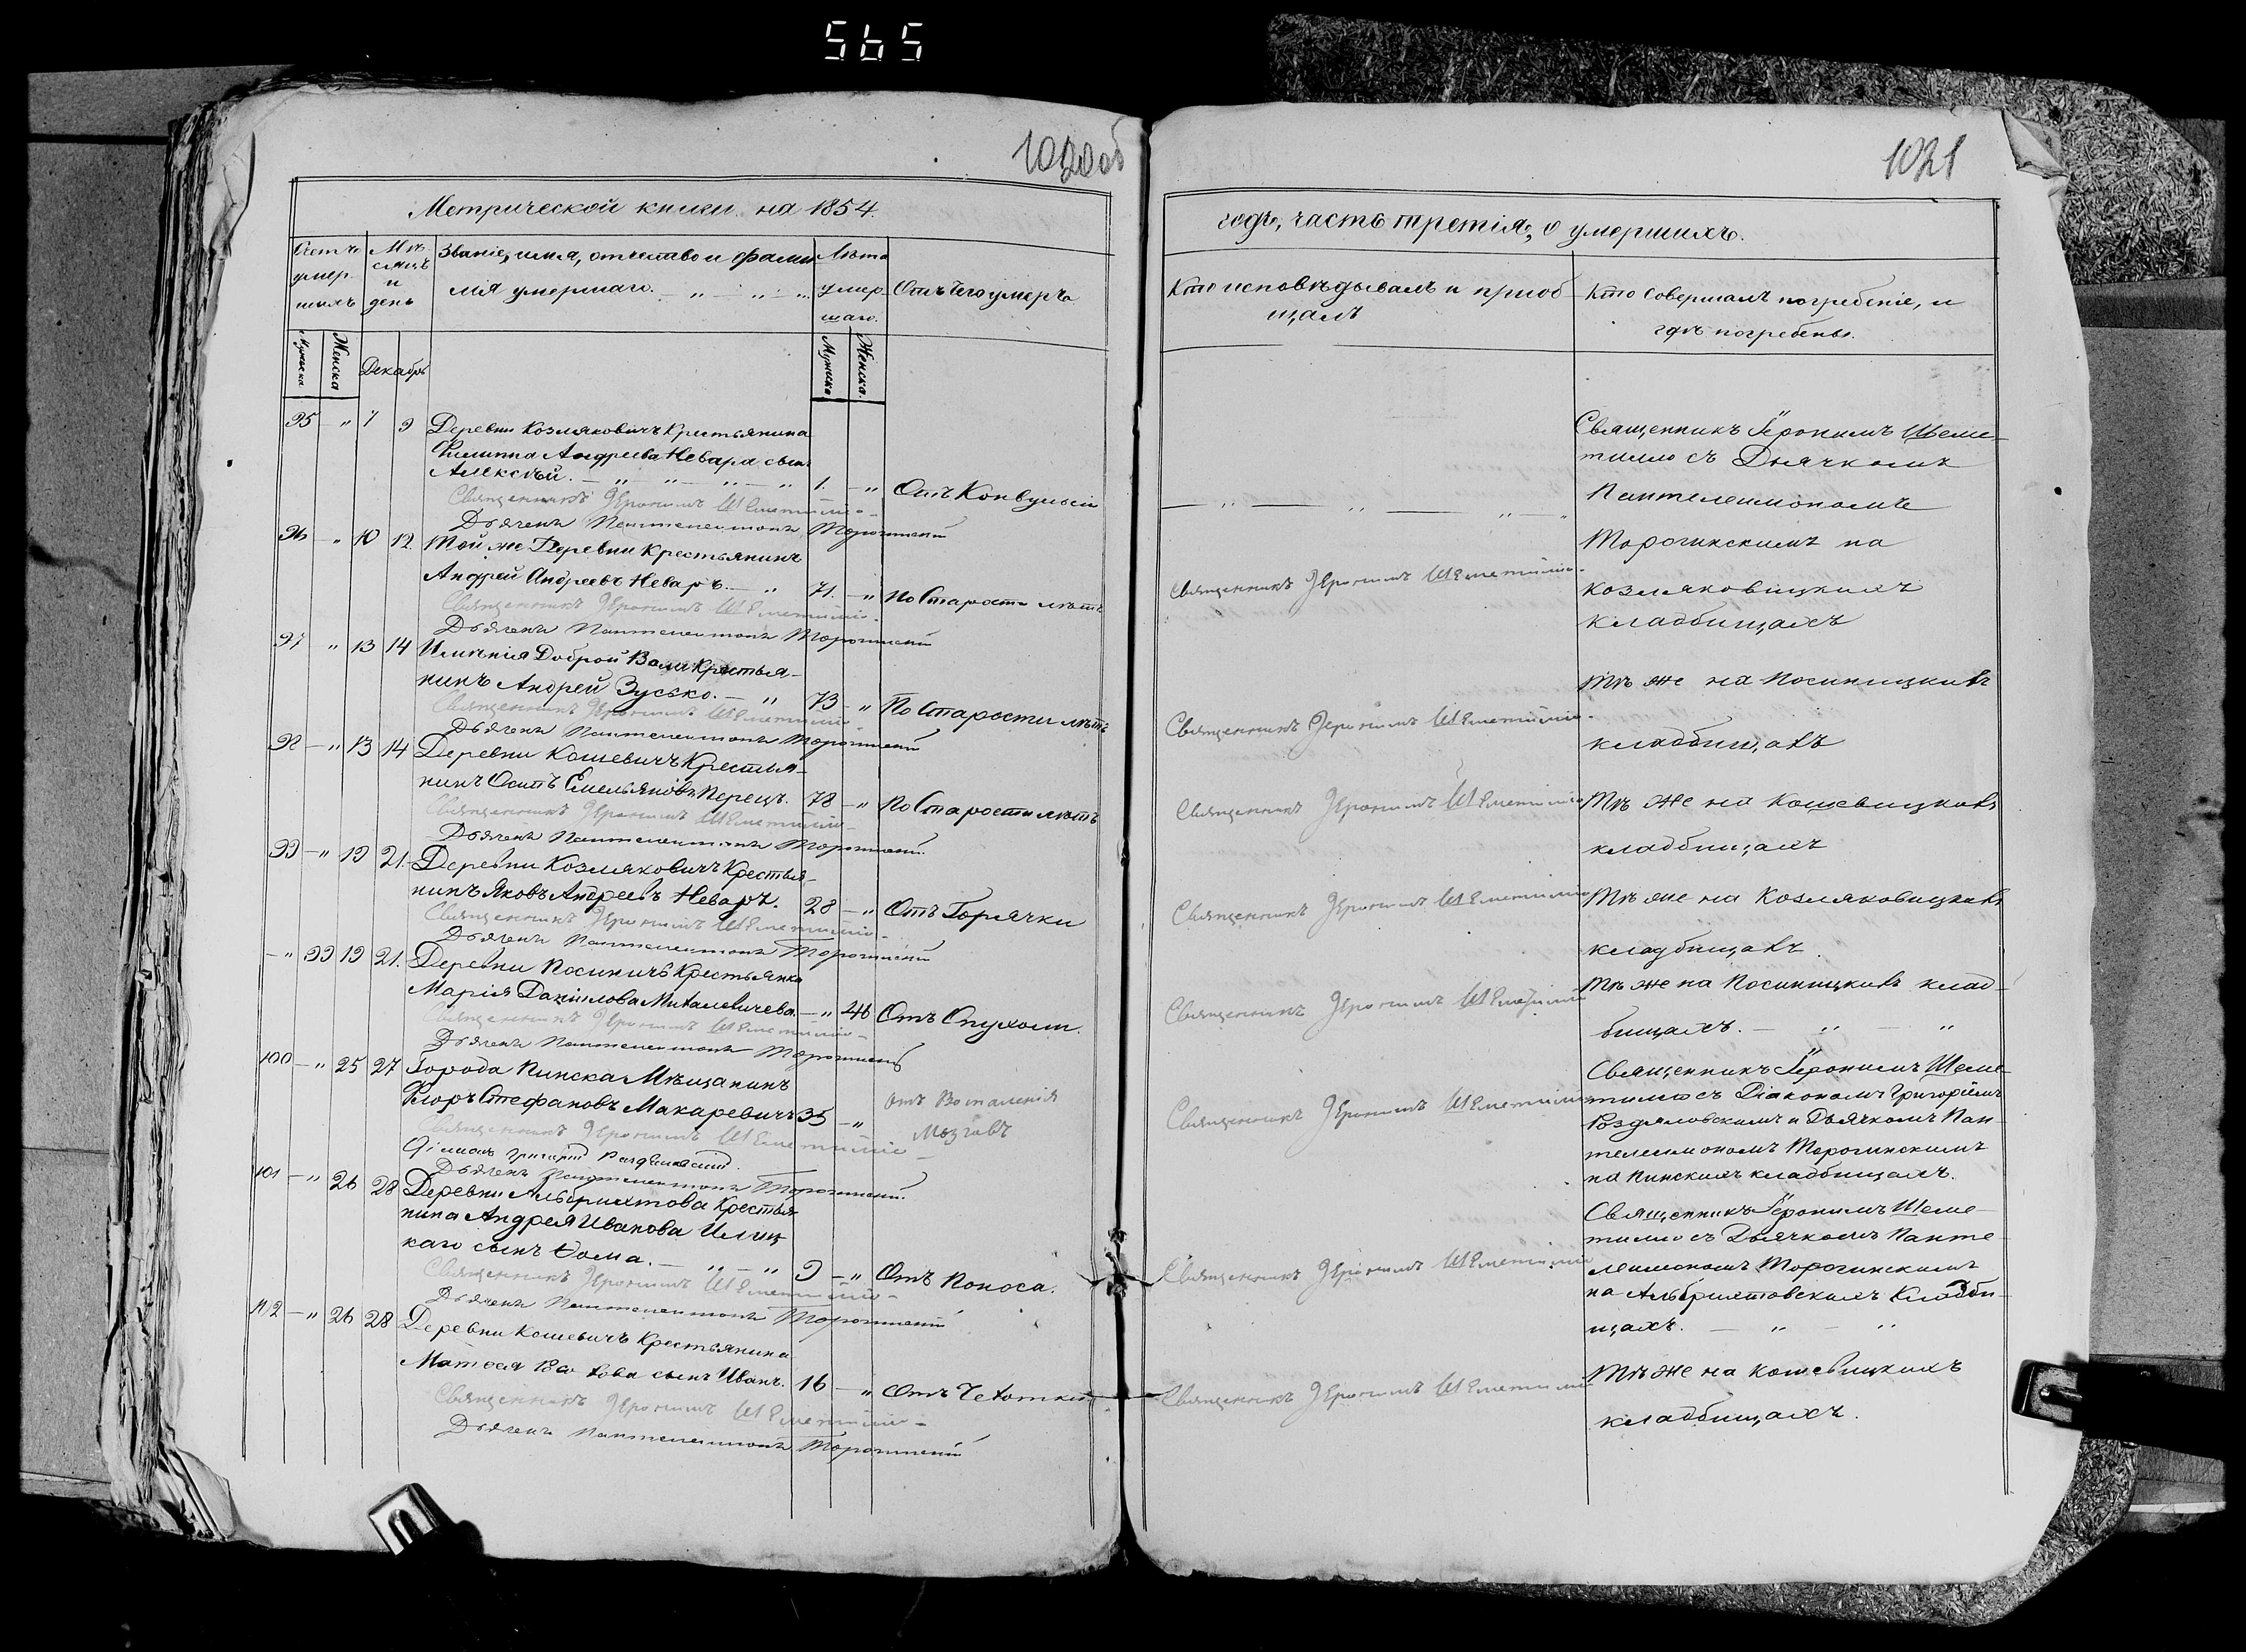 565
1020 об
Метрической книги на 1854.
Счетъ умершихъ
Мѣсяцъ и день
Званіе, имя, отчество и фамилія умершаго.
Лѣта умершаго.
Отъ чего умеръ
Мужеска
Женска
Декабрь
Мужеска
Женска.
95 — " 7 9 Деревни Козляковичъ Крестьянина
Филиппа Андреева Невара сынъ
Алексѣй. — " — " — " — " 1. — " Отъ Конвульсіи
Священникъ Іеронимъ Шеметилло
Дьячекъ Пантелеимонъ Марогинскій
96 — " 10 12 Той же Деревни Крестьянинъ
Андрей Андреевъ Неваръ. — " 71. — " По Старости лѣтъ
Священникъ Іеронимъ Шеметилло
Дьячекъ Пантелеимонъ Марогинскій
97 " 13 14 Имѣнія Доброй Воли Крестья-
нинъ Андрей Зусько. — " 73 — " По Старости лѣтъ
Священникъ Іеронимъ Шеметилло
Дьячекъ Пантелеимонъ Марогинскій
98 — " 13 14 Деревни Кошевичъ Крестья-
нинъ Осипъ Емельяновъ Перецъ. 78 — " По Старости лѣтъ
Священникъ Іеронимъ Шеметилло
Дьячекъ Пантелеимонъ Марогинскій
99 — " 19 21. Деревни Козляковичъ Крестья-
нинъ Яковъ Андреевъ Неваръ. 28 — " Отъ Горячки
Священникъ Іеронимъ Шеметилло
Дьячекъ Пантелеимонъ Марогинскій
— " 99 19 21. Деревни Посиничъ Крестьянка
Марія Даніилова Михалевичева. — " 46 Отъ Опухоли.
Священникъ Іеронимъ Шеметилло
Дьячекъ Пантелеимонъ Марогинскій
100 — " 25 27 Города Пинска Мѣщанинъ
Флоръ Стефановъ Макаревичъ 35 — " отъ Воспаленія
Мозговъ
Священникъ Іеронимъ Шеметилло
Діаконъ Григорій
Дьячекъ Пантелеимонъ Марогинскій
101 — " 26 28 Деревни Альбрихтова Крестья-
нина Андрея Иванова
каго сынъ Ѳома. — " — " 9 — " Отъ Поноса.
Священникъ Іеронимъ Шеметилло
Дьячекъ Пантелеимонъ Марогинскій
102 — " 26 28 Деревни Кошевичъ Крестьянина
сынъ Иванъ. 16 — " Отъ Чехотки
Священникъ Іеронимъ Шеметилло
Дьячекъ Пантелеимонъ Марогинскій
1021
годъ, часть третія, о умершихъ.
Кто исповѣдывалъ и пріоб-
щалъ
Кто совершалъ погребеніе, и
гдѣ погребены.
Священникъ Іеронимъ Шеме-
тилло съ Дьячкомъ
— " — " — " — " Пантелеимономъ
Марогинскимъ на
Священникъ Іеронимъ Шеметилло
Козляковицкихъ
кладбищахъ
Тѣ же на Посиницкихъ
Священникъ Іеронимъ Шеметилло
кладбищахъ
Священникъ Іеронимъ Шеметилло Тѣ же на Кошевицкихъ
кладбищахъ
Священникъ Іеронимъ Шеметилло Тѣ же на Козляковицкихъ
кладбищахъ.
Священникъ Іеронимъ Шеметилло Тѣ же на Посиницкихъ клад-
бищахъ. — " — "
Священникъ Іеронимъ Шеме-
Священникъ Іеронимъ Шеметилло тилло съ Діакономъ Григоріемъ
Роздяловскимъ и Дьячкомъ Пан-
телеимономъ Марогинскимъ
на Пинскихъ кладбищахъ.
Священникъ Іеронимъ Шеме-
тилло съ Дьячкомъ Панте-
Священникъ Іеронимъ Шеметилло леимономъ Марогинскимъ
на Альбрихтовскихъ Кладби-
щахъ. — " — "
Священникъ Іеронимъ Шеметилло Тѣ же на Кошевицкихъ
кладбищахъ.